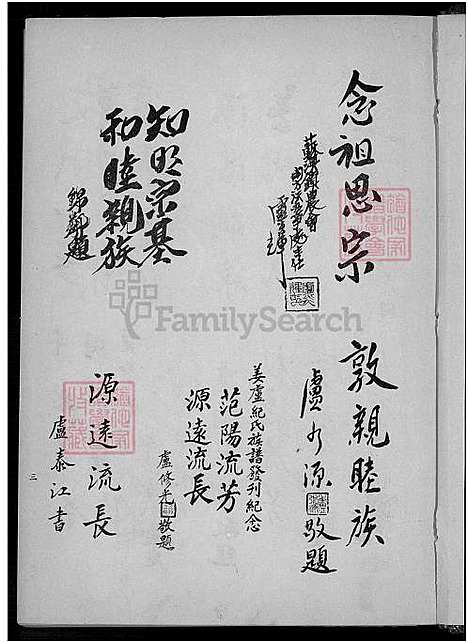 念祖思宗
蘇澳鎮農會
知明宗基
和睦親族
錦鄉題
敦親睦族
盧水源敬題
姜盧紀氏族譜發刊紀念
范陽流芳
源遠流長
盧修光敬題
源遠流長
盧泰江書
三
FamilySearch